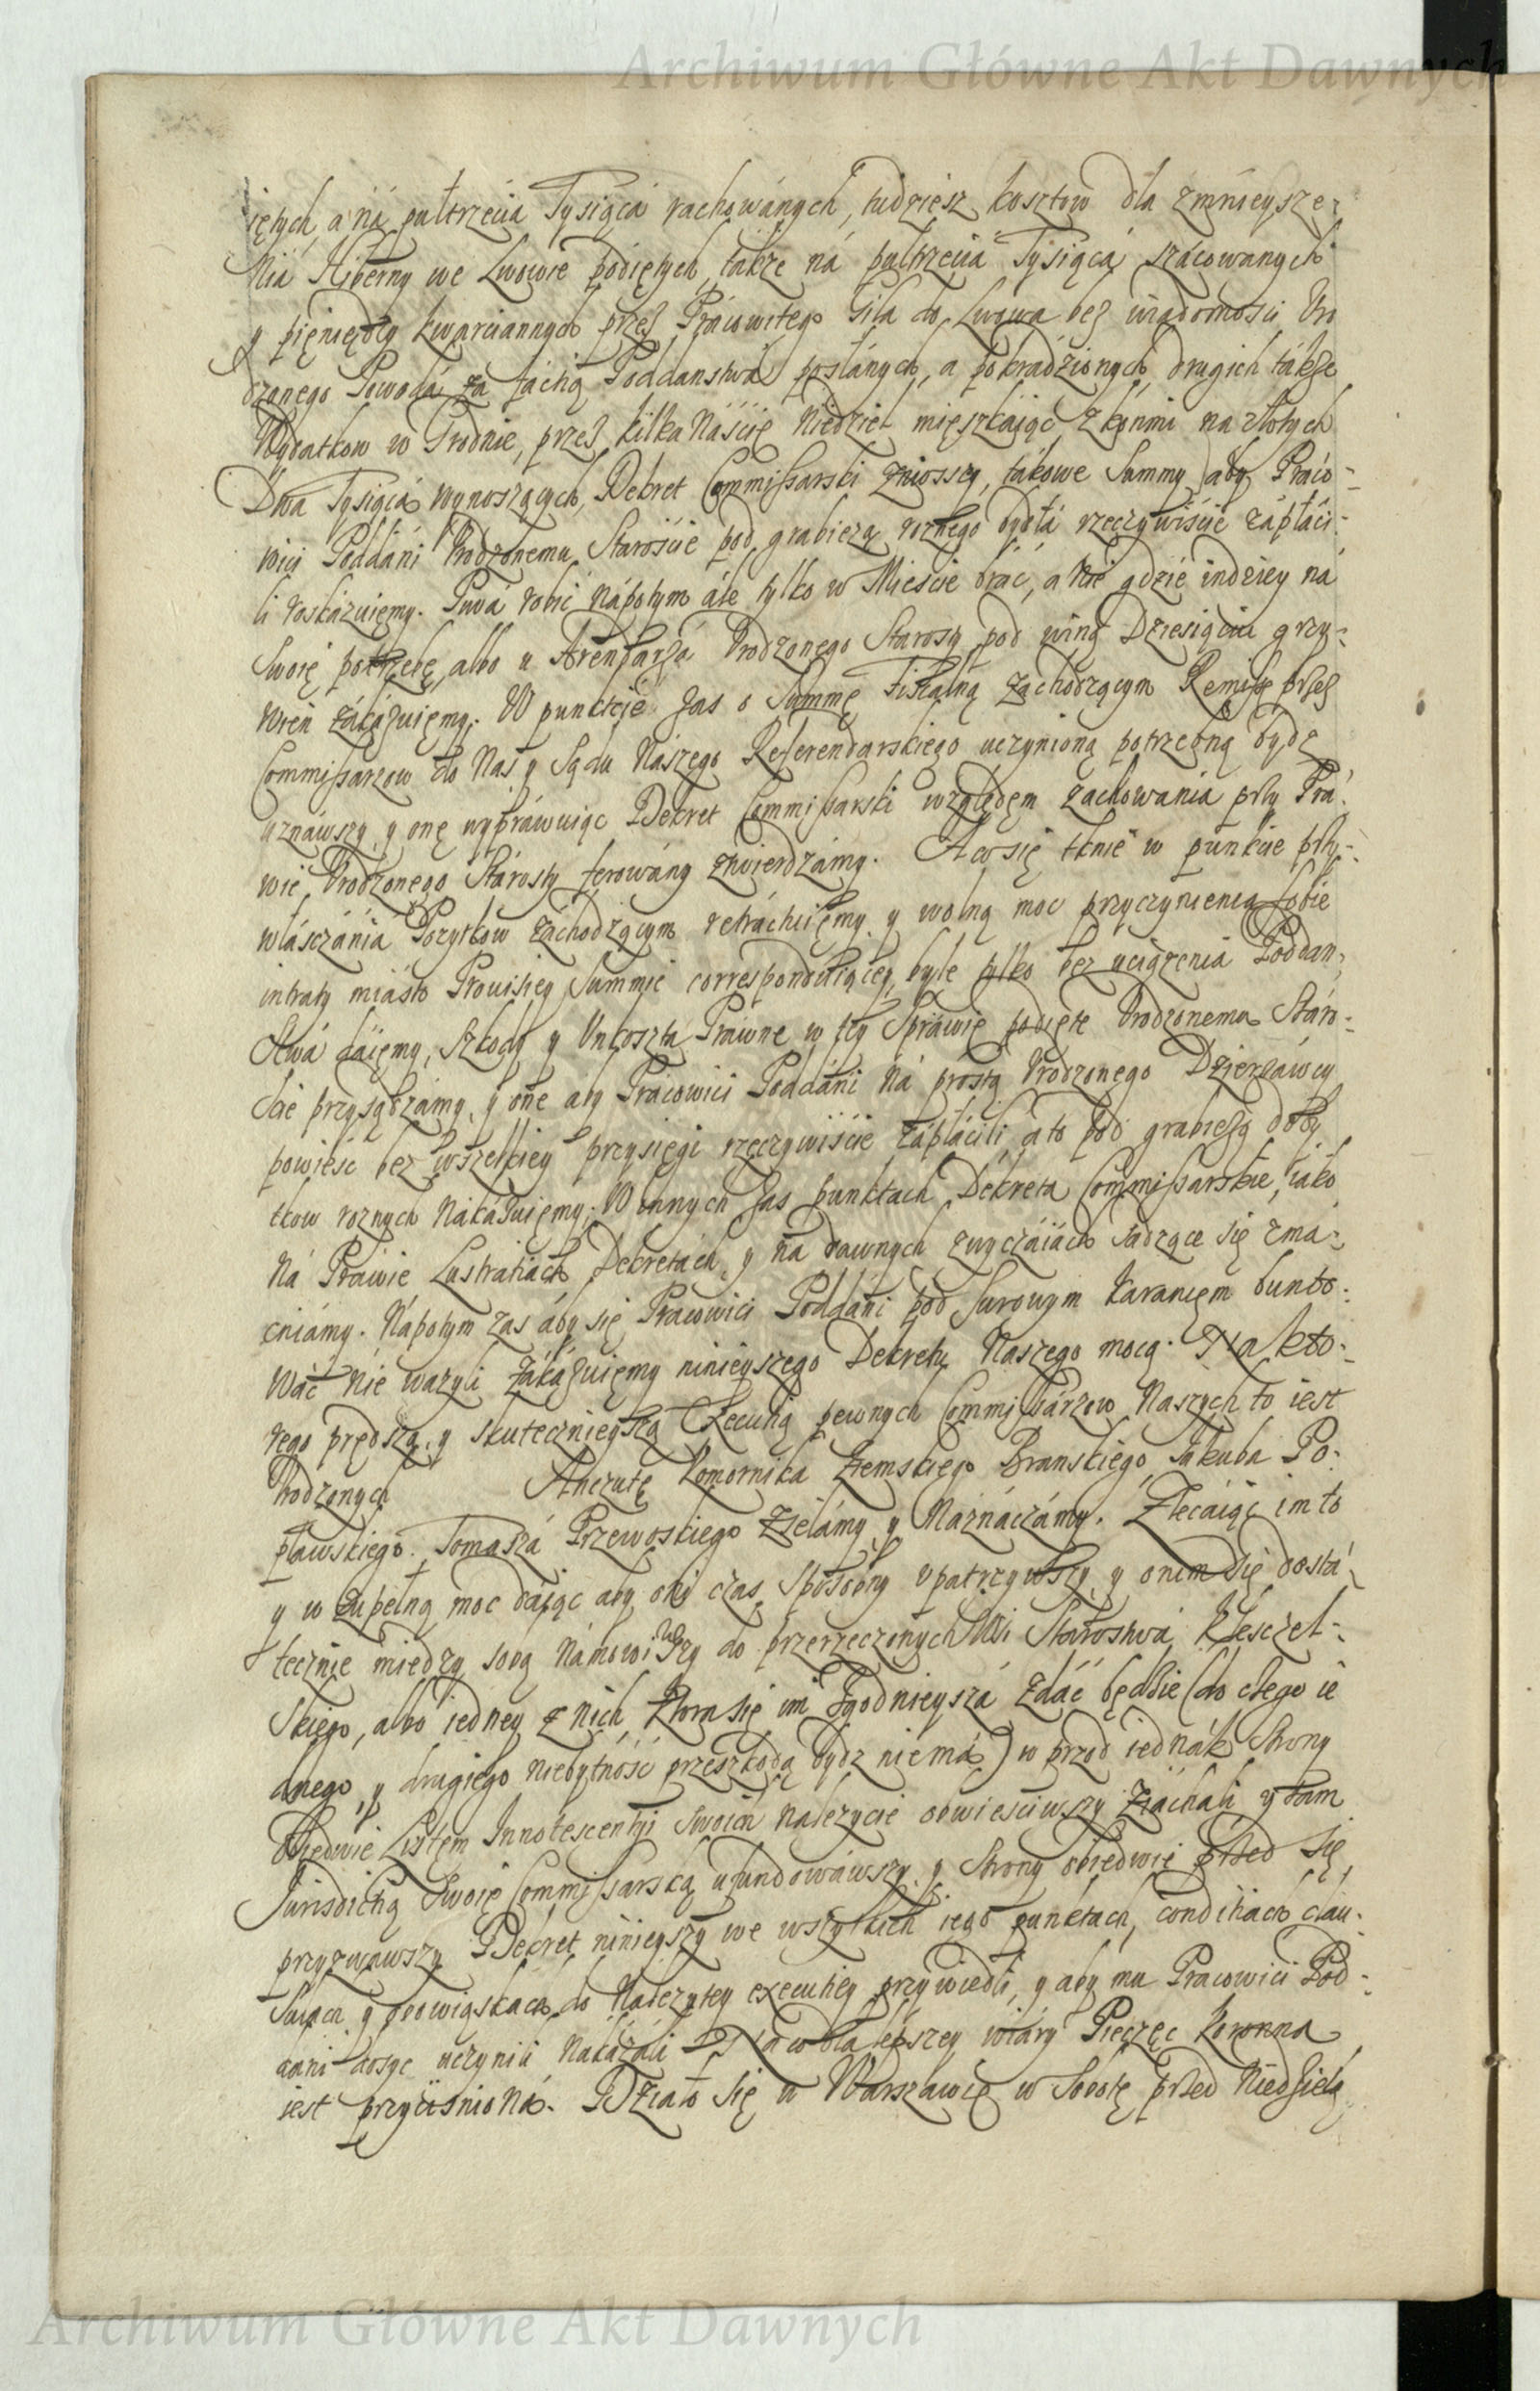 Archiwum Główne Akt Dawnych
iętych, a ná pułtrzecia Tysiąca rachowánych, tudziesz kosztow dla zmnieysze-
nia Hiberny we Lwowie podiętych, także ná pułtrzecia Tysiącá szácowánych
y pięniędzy kwarciannych przez Prácowitego Gila do Lwowa bez wiadomosci Vro
dzonego Powodá za fáctią Poddanstwá posłánych, a pokradzionych, drugich tákze
Wydatkow w Grodnie, przez kilka náscie Niedziel mięszkáiąc z konmi na złotych
Dwa Tysiącá wynoszących, Dekret Commissarski zniosszy, tákowe Summy aby Práco-
wici Poddáni Vrodzonemu Starosćie pod grabieżą roznego bydłá rzeczywiscie zápłáci-
li roskázuięmy. Piwá robić nápotym ále tylko w Miescie bráć, a nie gdzie indziey ná
Swoię potrzebę, albo u Arendarzá Vrodzonego Starosty pod winą Dziesiąciu grzy-
wien zákázuięmy. W punkcie zas o Summę Fiskalną záchodzącym Remissę przez
Commissarzow do Nas y Sądu Nászego Referendarskiego uczynioną potrzebną bydz
uznáwszy, y onę wypráwuiąc Dekret Commissarski względęm záchowania przy Prá-
wie Vrodzonego Stárosty ferowány ztwierdzámy. A co się tknie w punkcie przy-
własczánia Pozytkow záchodzącym retráctuięmy, y wolną moc przyczynienia sobie
intraty miásto Prouisiey Summie correspondуiącey, byle tylko bez uciązenia Poddan-
stwá dáięmy, Szkody y Vnkosztá Práwne w tey Spráwie podięte Vrodzonemu Stáro-
scie przysądzámy, y one aby Prácowici Poddáni ná prostą Vrodzonego Dzierzáwcy
powieść bez wszelkiey przysięgi rzeczywiście zápłácili, a to pod grabieżą doby
tkow roznych nákázuięmy. W innych zas punktách Dekreta Commissarskie, iáko
ná Práwie Lustratiách Dekretách, y na dawnych zwyczáiách sadzące się zmá-
cniámy. Nápotym zas áby się Prácowici Poddáni pod surowym karanięm bunto-
wáć nie wazyli zákázuięmy ninieyszego Dekretu Naszego mocą. Na kto-
rego prędszą, y skutecznieyszą Exęcutią pewnych Commissárzow Naszych to iest
Vrodzonych Anczutę Komornika Ziemskiego Branskiego, Iakuba Po-
pławskiego, Tomaszá Przewoskiego zsełámy y Náznáczámy. Zlecáiąc im to
y w zupełną moc dáiąc aby oni czas sposobny vpatrzywszy, y onim się dostá-
tecznie między sobą námowiwszy do przerzeczonych Wsi Stárostwá Klesczel-
skiego, albo iedney z nich ktora się im zgodnieyszá zdáć będzie (do czego ie
dnego, y drugiego niebytność przeszkodą bydz niemá) w przod iednák Strony
Obiedwie Listem Innotescentyi swoim nalezycie obwiesciwszy ziáchali y tam
Iurisdictią Swoię Commissarską ufundowáwszy, y Strony obiedwie przed się
przyzwawszy Dekret ninieyszy we wszytkich iego punktach, conditiach, clau-
sułach y obowiąskach do Nalezytey executiey przywiedli, y aby mu Pracowici Pod-
dani dosyc uczynili nakázáli. Na co dla lepszey wiáry Pieczęc Koronna
iest przycisniona. Działo się w Warszawie w Sobotę przed Niedzielą
Archiwum Główne Akt Dawnych